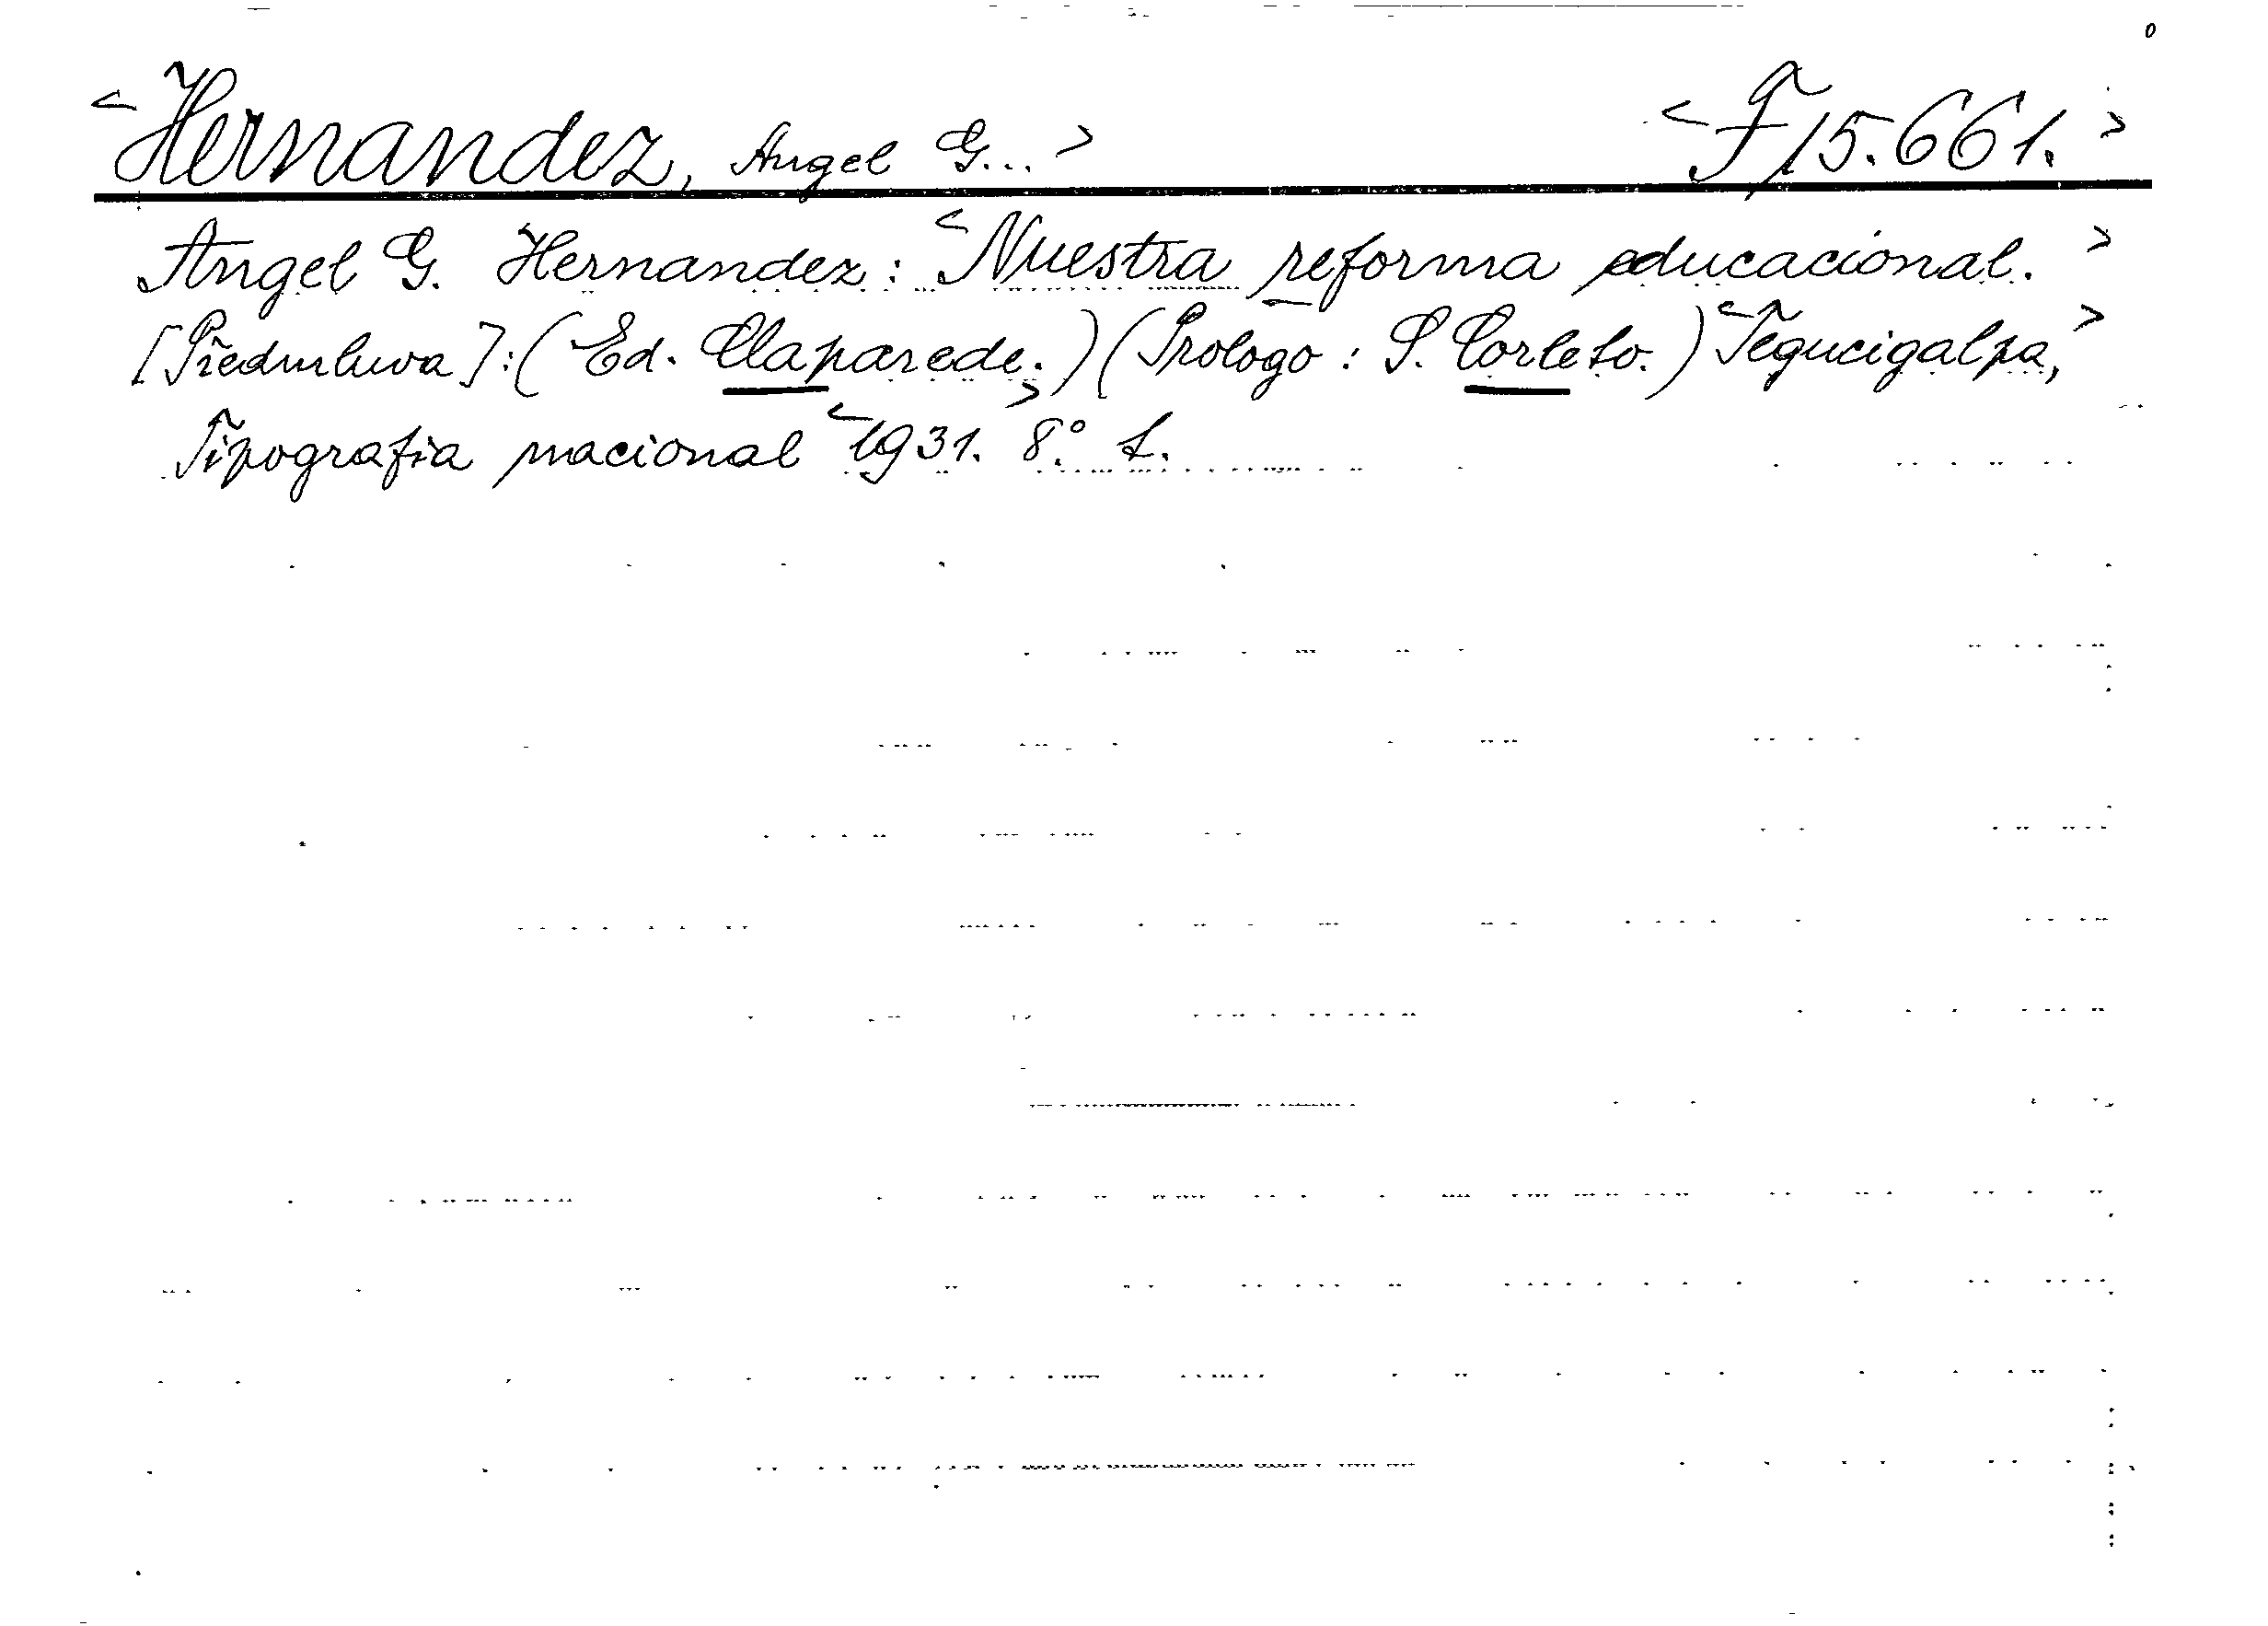 <Hernandez, Angel G...> <F 15.661.>
Angel G. Hernandez: <Nuestra reforma educacional.>
[Předmluva]: (Ed. Claparede.) (Prologo: S. Corleto.) <Tegucigalpa,>
Tipografia nacional <1931.> 8° L.